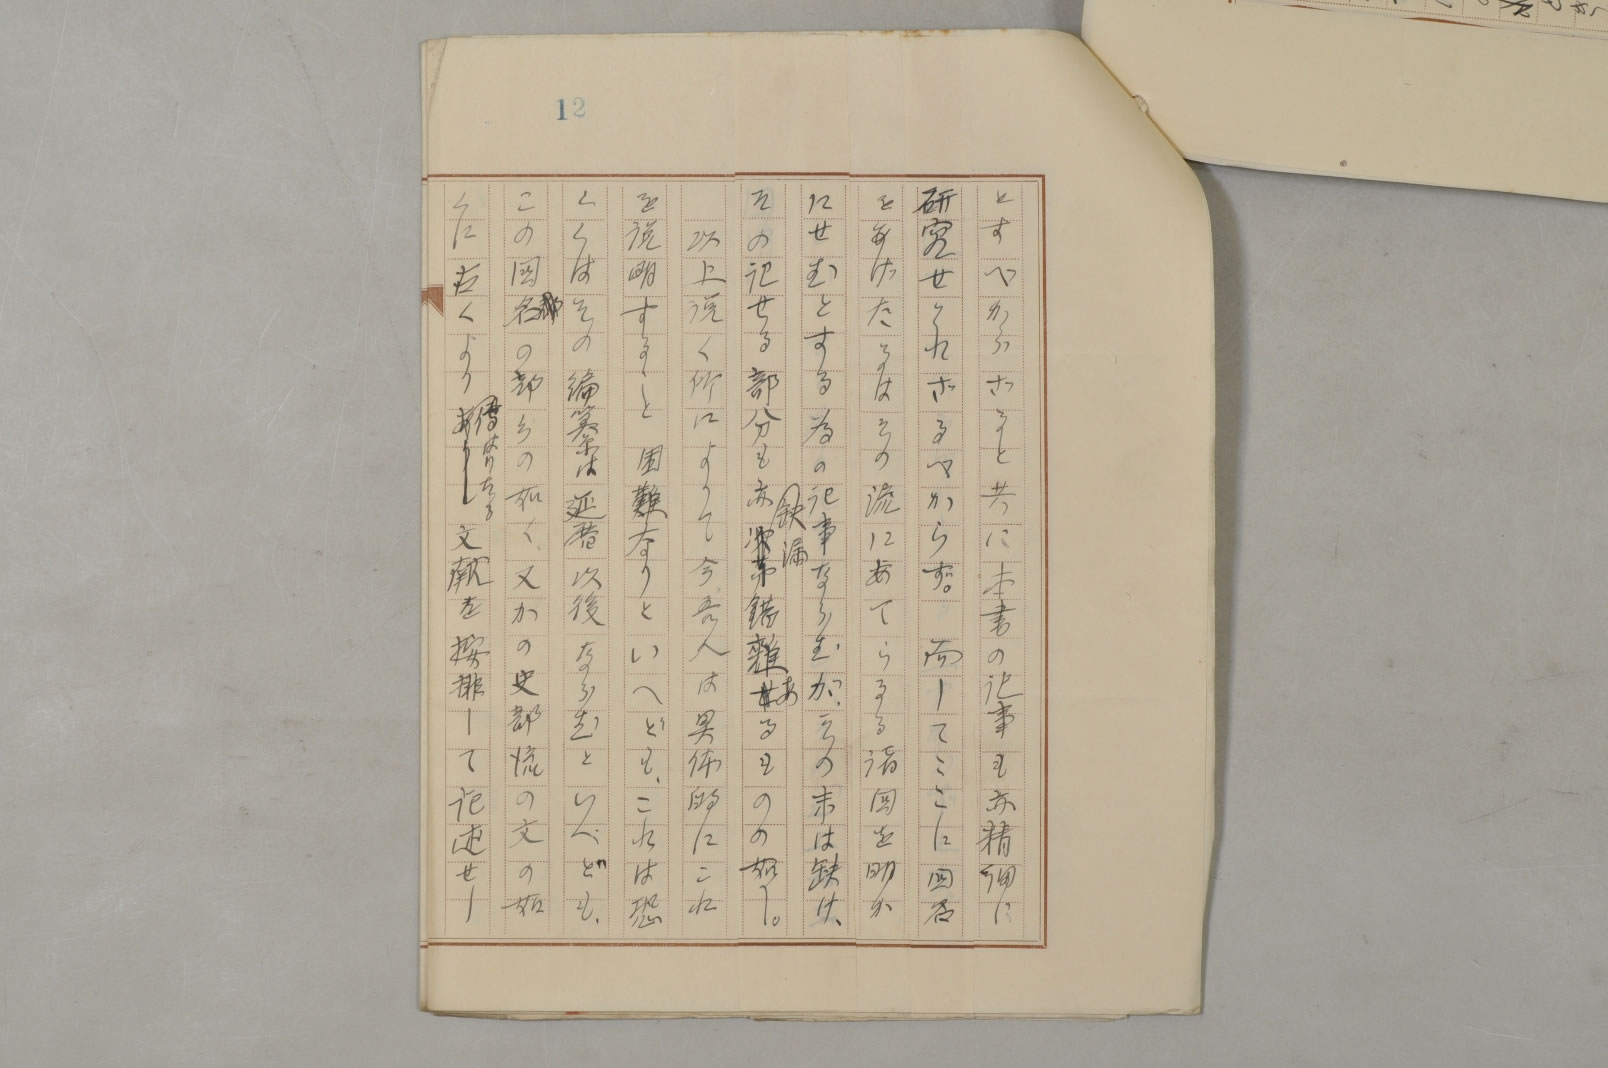 12
とすべからざると共に本書の記事も亦精細に
研究せられざるべからず。而してここに国名
をあげたるはその流にあてらるる諸国を明か
にせむとする為の記事ならむが、その末は缺け、
その記せる部分も亦缺漏錯雑あるものの如し。
以上説く所によりて今、吾人は具体的にこれ
を説明すること困難なりといへども、これは恐
らくはその編纂は延暦以後ならむといへども、
この国名郡の部分の如く、又かの史部流の文の如
くに古くより傳はりたる文献を按排して記述せし